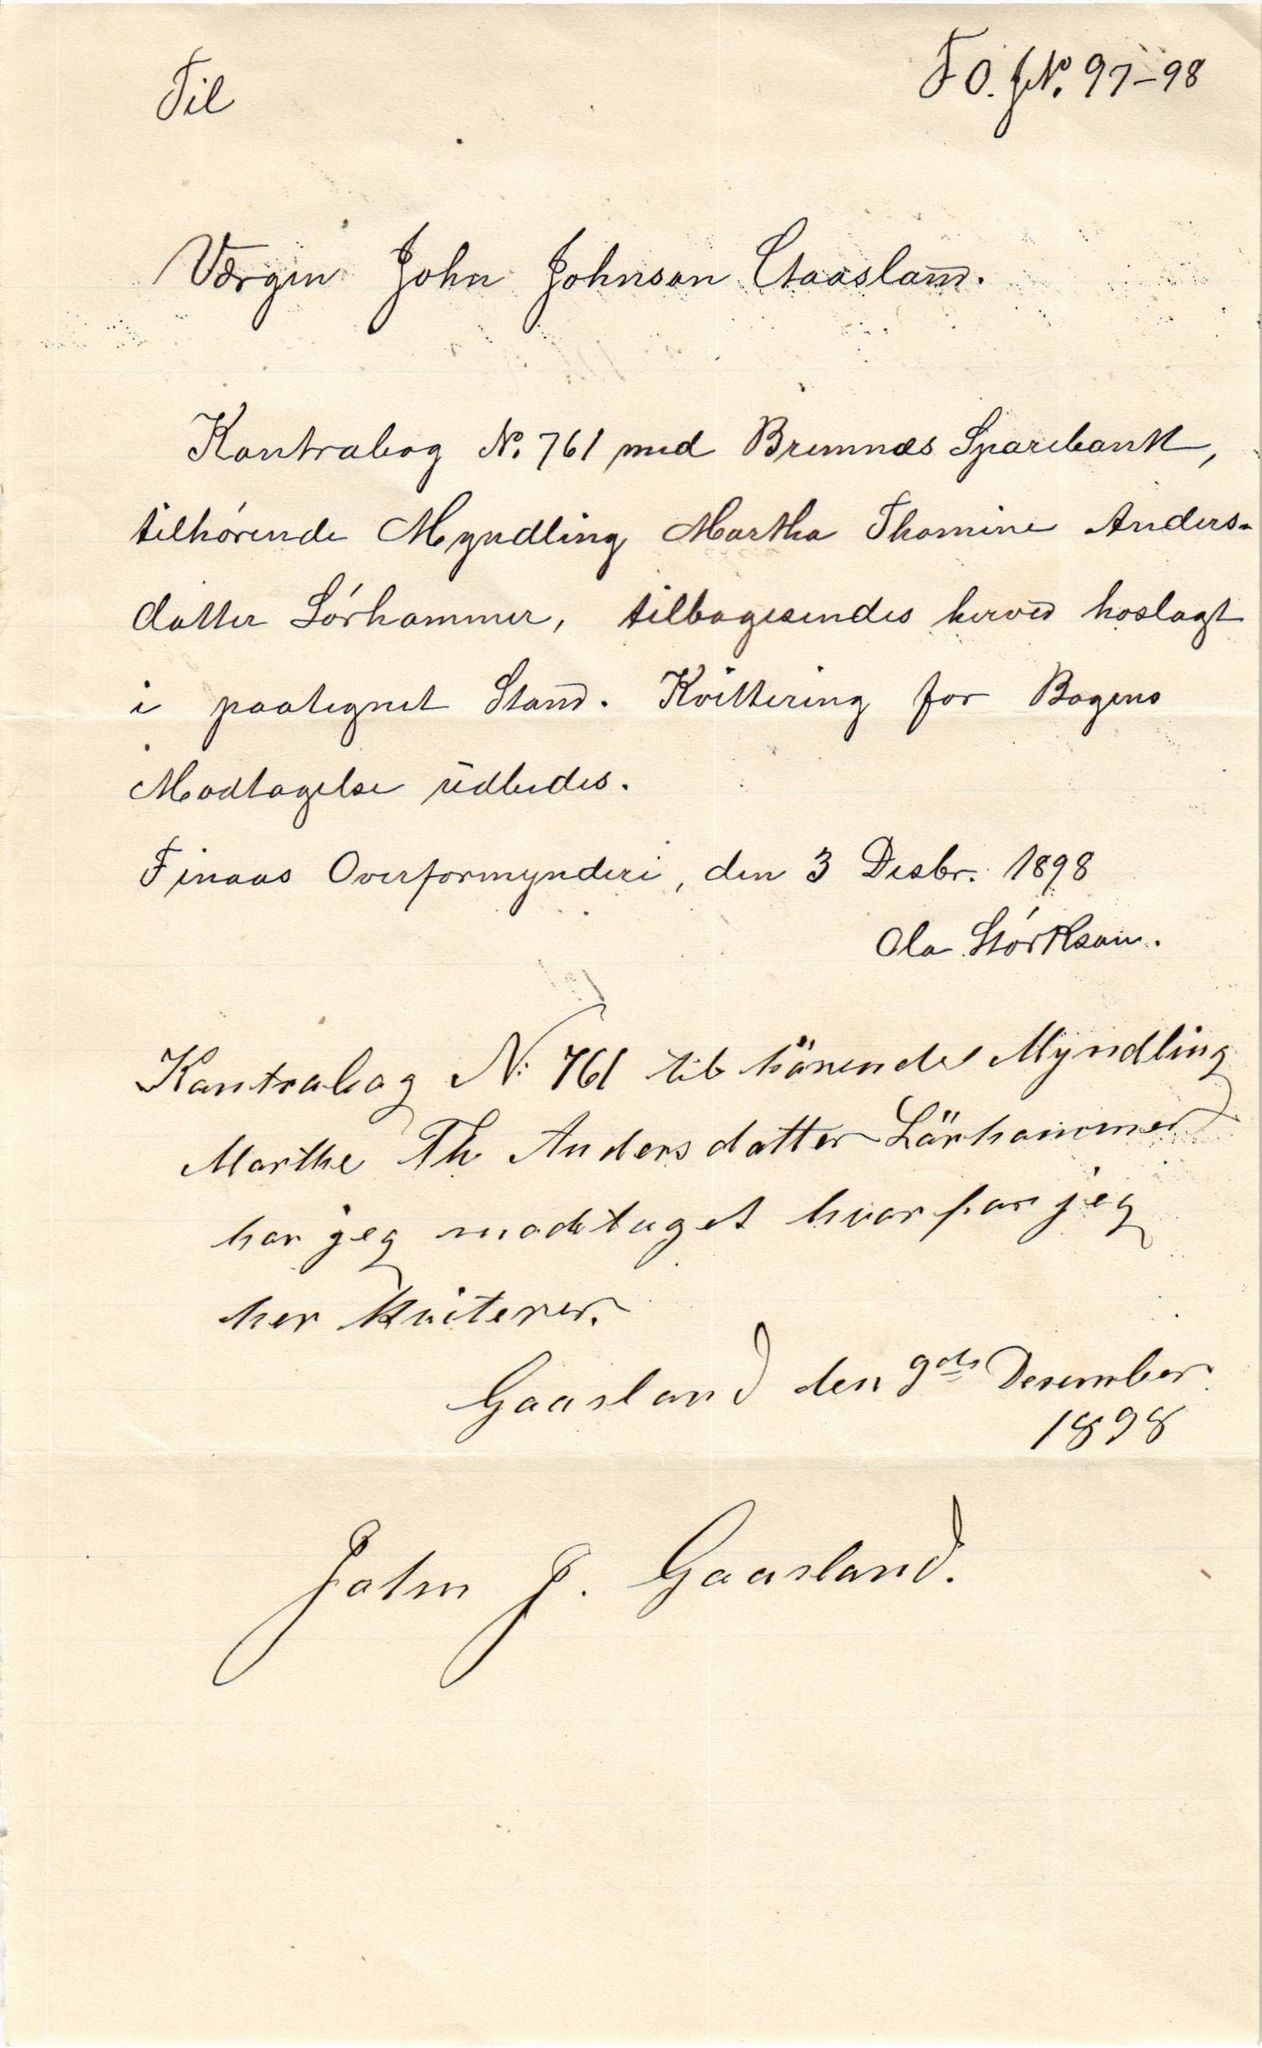 F O. J.N. 97-98
Til
Værgen John Johnson Gaasland.
Kontrabog N. 761 med Bremnæs Sparebank,
tilhørende Myndling Martha Thomine Anders-
datter Sørhammer, tilbagesendes herved hoslagt
i paategnet Stand. Kvittering for Bogens
Modtagelse udbedes.
Finaas Overformynderi, den 3 Desbr. 1898
Ola Størkson.
Kontrabog N: 761 til hörende Myndling
Marthe Th Andersdatter Sörhammer
har jeg modtaget hvorfor jeg
her kviterer.
Gaasland den 9de Desember
1898
John J. Gaasland.